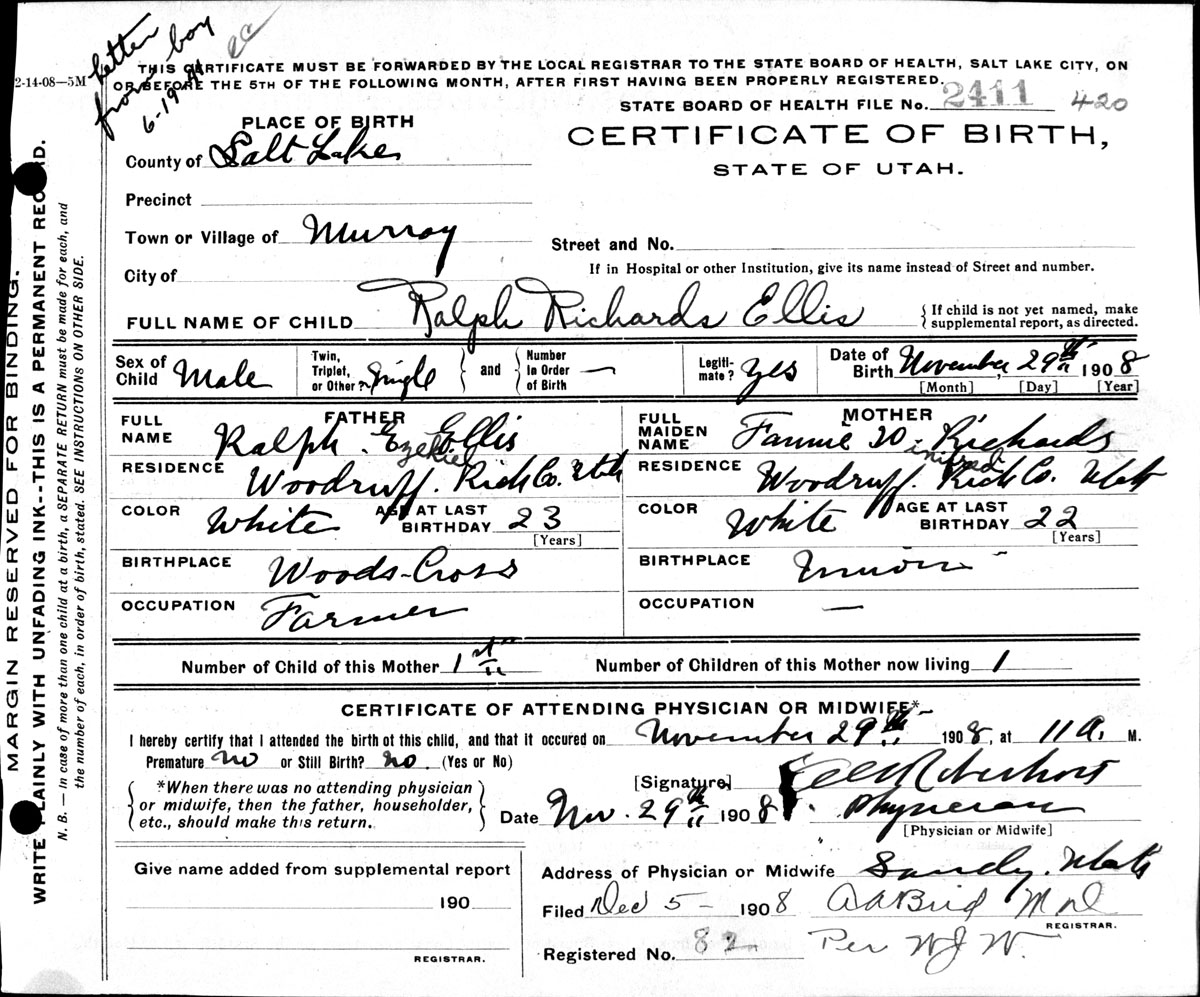 Letter
from boy
6-19-41
2-14-08—5M
THIS CERTIFICATE MUST BE FORWARDED BY THE LOCAL REGISTRAR TO THE STATE BOARD OF HEALTH, SALT LAKE CITY, ON
OR BEFORE THE 5TH OF THE FOLLOWING MONTH, AFTER FIRST HAVING BEEN PROPERLY REGISTERED.
STATE BOARD OF HEALTH FILE No. 2411 420
PLACE OF BIRTH
CERTIFICATE OF BIRTH,
STATE OF UTAH.
County of Salt Lake
Precinct
Town or Village of Murray
Street and No.
City of
If in Hospital or other Institution, give its name instead of Street and number.
FULL NAME OF CHILD Ralph Richards Ellis { If child is not yet named, make
supplemental report, as directed.
Sex of Child Male
Twin, Triplet, or Other? Single } and { Number In Order of Birth —
Legitimate? Yes
Date of Birth November 29th 1908
[Month] [Day] [Year]
FATHER
FULL NAME Ralph Ezekiel Ellis
RESIDENCE Woodruff. Rich Co. Utah
COLOR White AGE AT LAST BIRTHDAY 23
[Years]
BIRTHPLACE Woods-Cross
OCCUPATION Farmer
MOTHER
FULL MAIDEN NAME Fannie W. Richards
RESIDENCE Woodruff. Rich Co. Utah
COLOR White AGE AT LAST BIRTHDAY 22
[Years]
BIRTHPLACE
OCCUPATION —
Number of Child of this Mother 1st Number of Children of this Mother now living 1
CERTIFICATE OF ATTENDING PHYSICIAN OR MIDWIFE*
I hereby certify that I attended the birth of this child, and that it occured on November 29th 1908, at 11 A. M.
Premature No or Still Birth? No. (Yes or No)
{ *When there was no attending physician
or midwife, then the father, householder,
etc., should make this return. }
[Signature]
Date Nov. 29th 1908. Physician
[Physician or Midwife]
Give name added from supplemental report
190
REGISTRAR.
Address of Physician or Midwife Sandy. Utah
Filed Dec 5 - 1908 A A Bird M D
REGISTRAR.
Registered No. 82 Per W J W.
MARGIN RESERVED FOR BINDING.
WRITE PLAINLY WITH UNFADING INK--THIS IS A PERMANENT RECORD.
N. B. — In case of more than one child at a birth, a SEPARATE RETURN must be made for each, and
the number of each, in order of birth, stated. SEE INSTRUCTIONS ON OTHER SIDE.